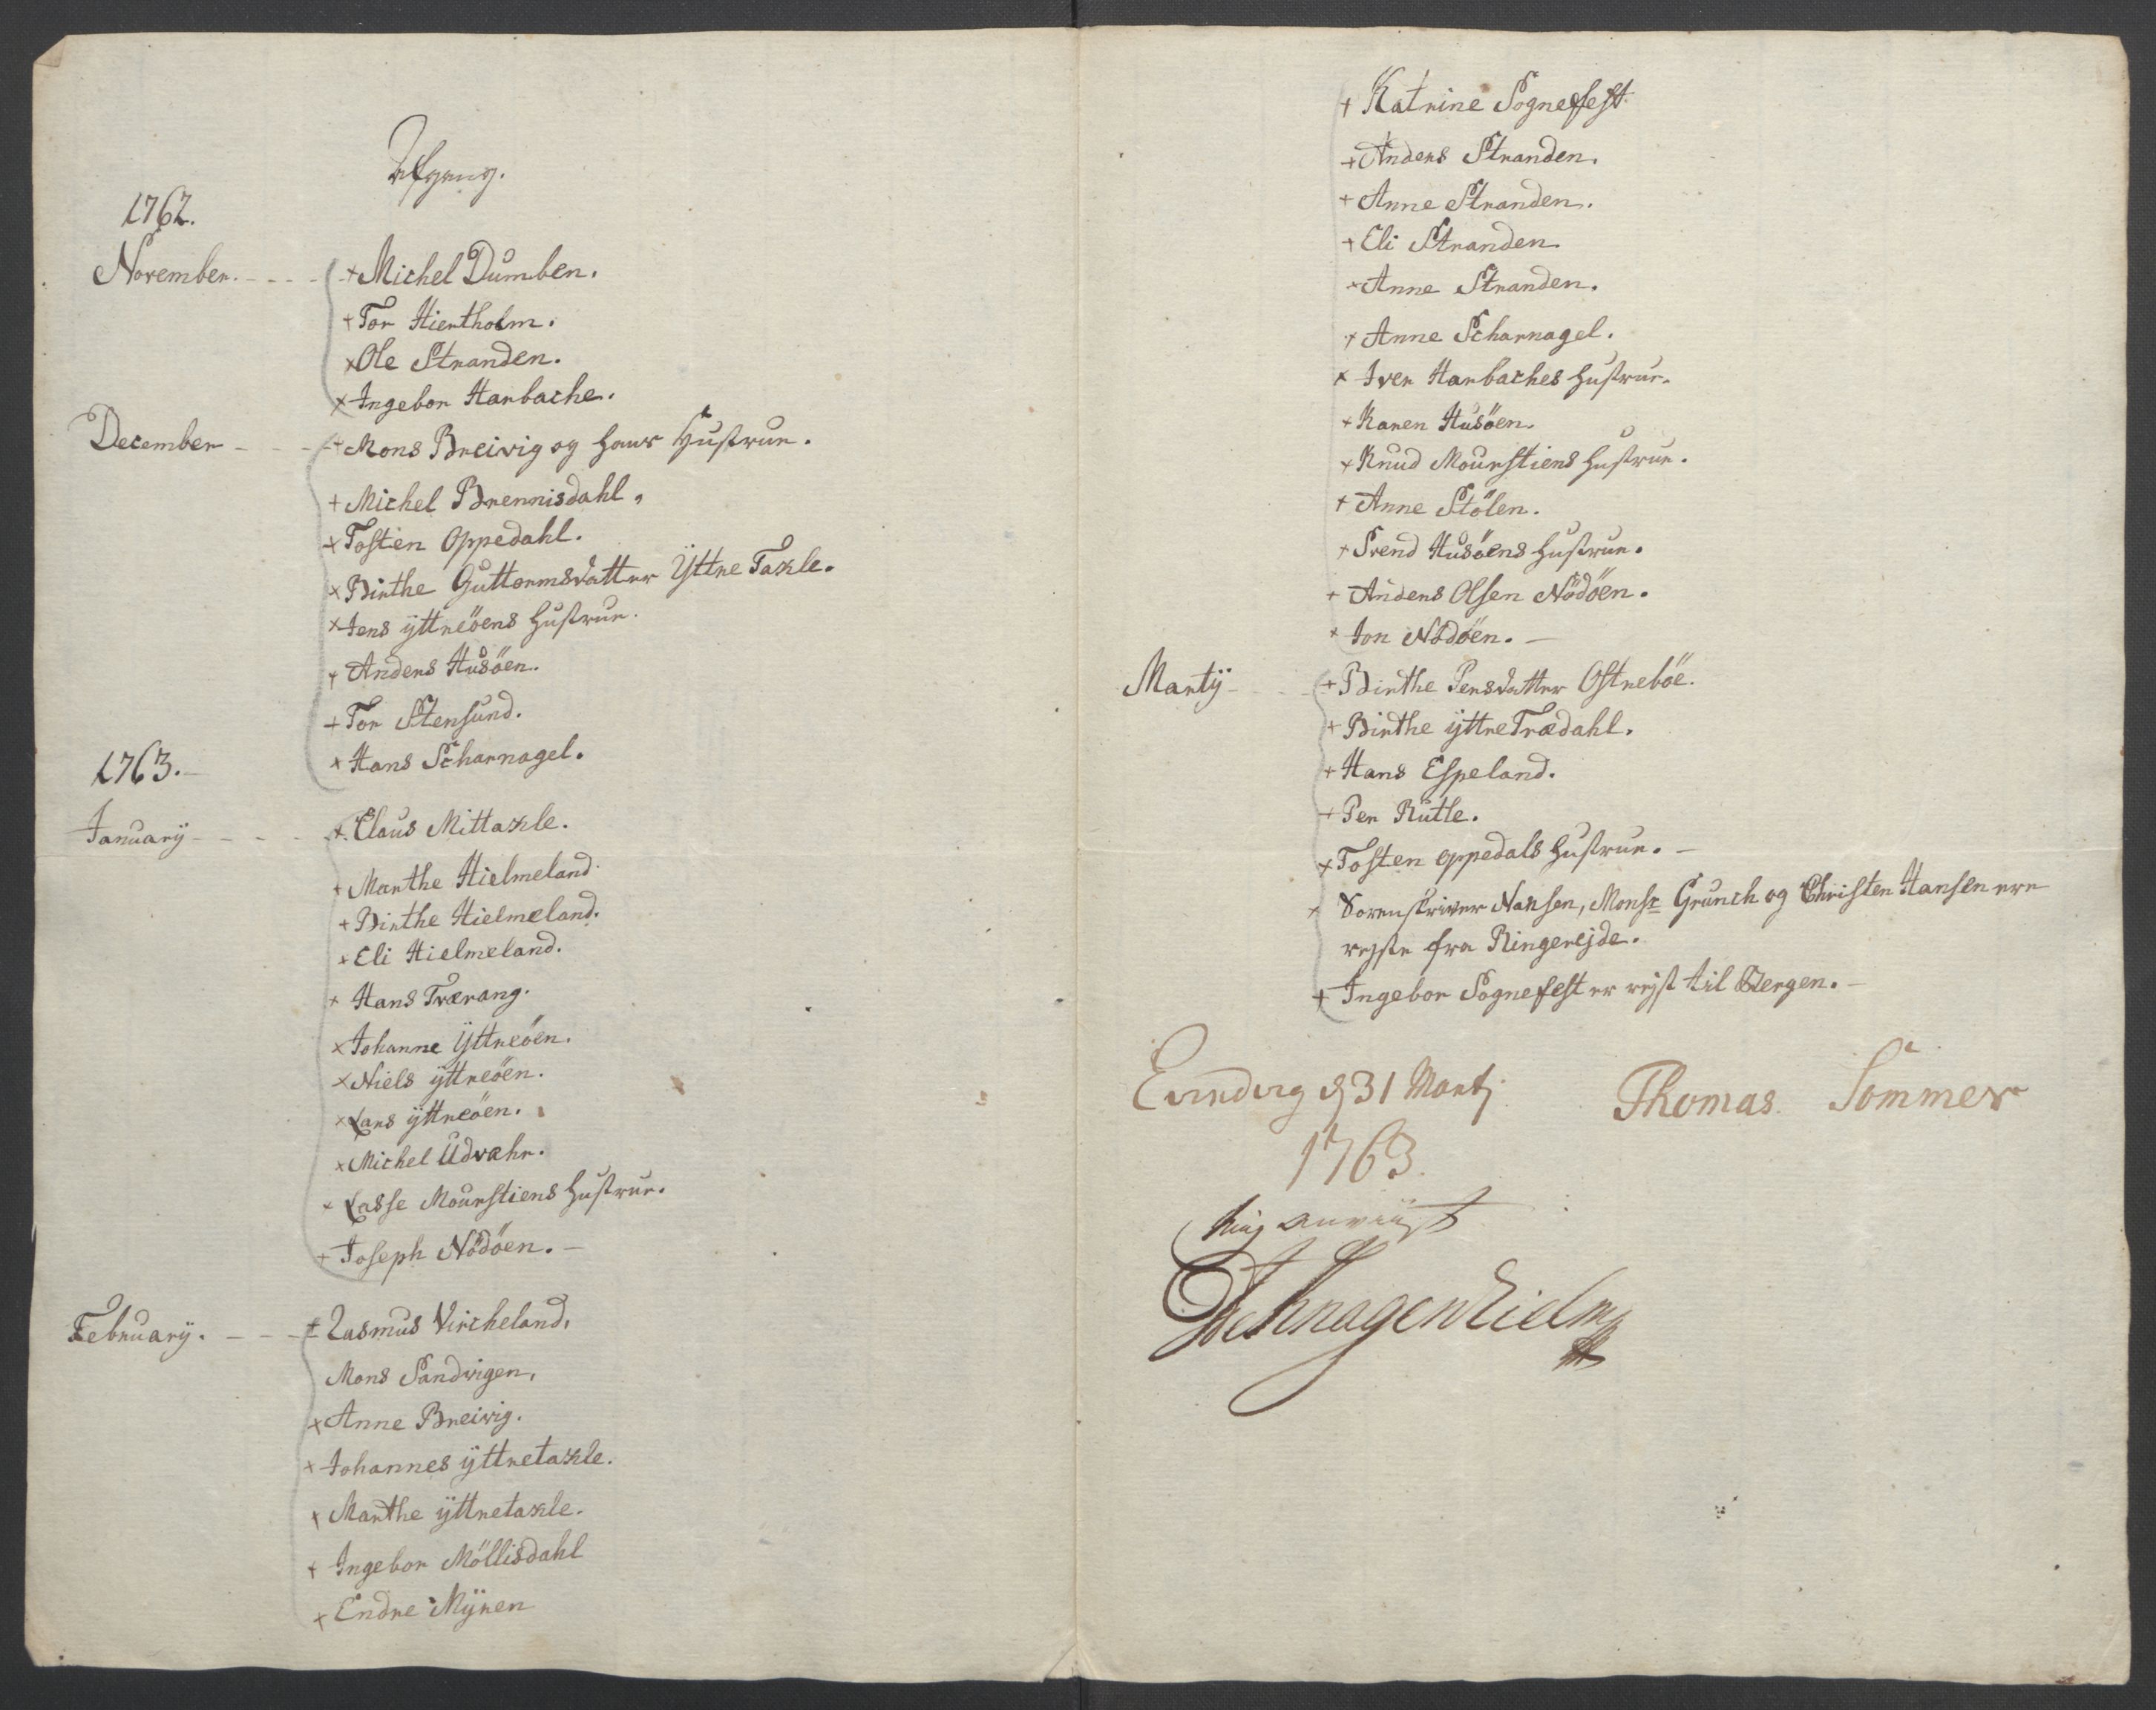 Afgang.
1762.
November. - - - - + Michel Dumben.
+ Tor Hiertholm.
x Ole Stranden.
x Ingebor Harbache.
December - - - + Mons Breivig og hans Hustrue.
+ Michel Brennisdahl.
x Tosten Oppedahl.
x Birthe Guttormsdatter Ÿttre Takle.
x Jens ÿttreöens Hustrue.
+ Anders Husöen.
+ Tor Stensund.
x Hans Scharnagel.
1763.-
Januarÿ - - - - +. Claus Mittakle.
+ Marthe Hielmeland.
+ Birthe Hielmeland.
+ Eli Hielmeland.
+ Hans Trærang.
x Johanne Ÿttreöen.
x Niels ÿttreöen.
x Lars ÿttreöen.
x Michel Udvahr.
x Lasse Mourstiens Hustrue.
+ Joseph Nödöen. -
Februarÿ. - - - + Rasmus Vircheland.
Mons Sandvigen.
x Anne Breivig.
x Johannes ÿttretakle.
x Marthe ÿttretakle.
+ Ingebor Möllisdahl
x Endre Mÿren
+ Katrine Sognefest.
+ Anders Stranden.
+ Anne Stranden.
+ Eli Stranden.
+ Anne Stranden.
+ Anne Scharnagel.
x Iver Harbaches Hustrue.
+ Karen Husöen.
x Knud Mourstiens Hustrue.
+ Anne Stölen.
+ Svend Husöens Hustrue.
+ Anders Olsen Nödöen.
+ Jon Nödöen. -
Martÿ - - - + Birthe Persdatter Ostreböe.
+ Birthe ÿttre Trædahl.
+ Hans Espeland.
+ Per Rutle.
x Tosten oppedals Hustrue. -
x Sorenskriver Nansen, Monsr Grunch og Christen Hansen ere
rejste fra Ringerejde.
+ Ingebor Sognefest er rejst til Bergen. -
Evindvig d 31 Martj Thomas Sommer
1763.
mig anviist